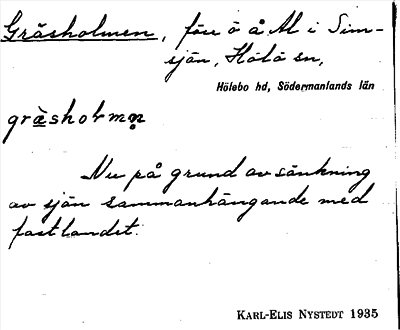 Gräsholmen, förr ö å Al i Sim-
sjön, Hölö sn,
Hölebo hd, Södermanlands län
gràsholmn̥
Nu på grund av sänkning
av sjön sammanhängande med
fastlandet.
KARL-ELIS NYSTEDT 1935